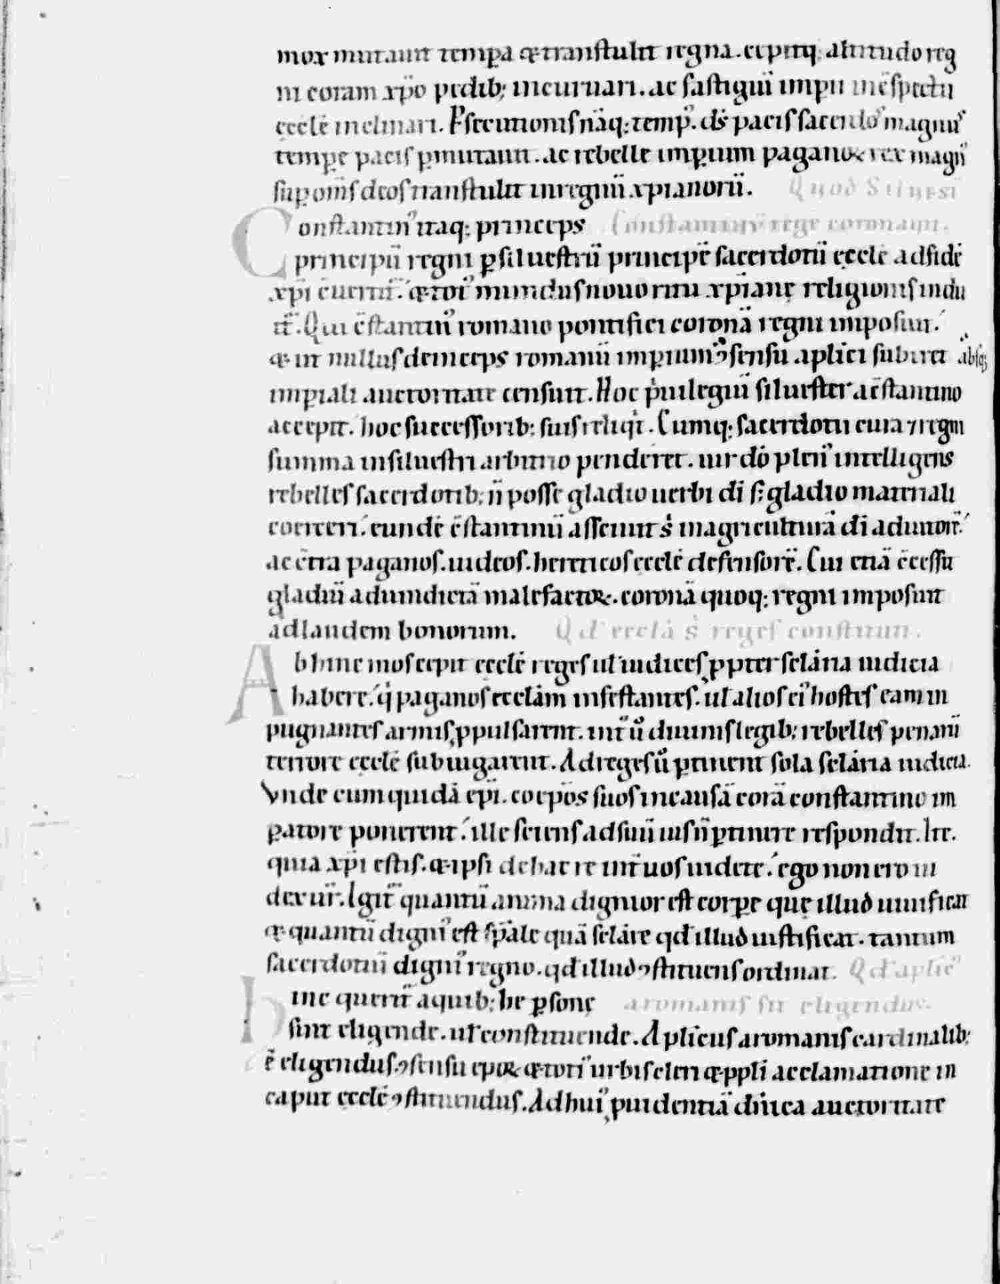 mox mutauit tempa & transtulit regna. cepitq; altitudo reg
ni coram xpo pedib; incuruari. ac fastigiu impii in cspectu
eccle inclinari. Psecutionis naq; temp. ds pacis sacerdos magnus
tempe pacis pmutauit. ac rebelle impium paganoꝝ rex magn
sup oms deos transtulit in regnu xpianoru. Quod Siluest
Constantin itaq; princeps Constantinu rege coronauit.
principu regni p siluestru principe sacerdotu eccle ad fide
xpi cuertit. & tot mundus nouo ritu xpiane religionis indu
it. Qui cstantin romano pontifici corona regni imposuit.
& ut nullus deinceps romanu impium ꝯsensu aplici subiret absq;
impiali auctoritate censuit. Hoc priuilegiu siluester a cstantino
accepit. hoc successorib; suis reliqt. Cumq; sacerdotii cura ⁊ regni
summa in siluestri arbitrio penderet. uir do plen intelligens
rebelles sacerdotib; n posse gladio uerbi di s; gladio materiali
coerceri. eunde cstantinu asciuit s in agricultura di adiutore.
ac ctra paganos. iudeos. hereticos eccle defensore. Cui etia ccessit
gladiu ad uindicta malefactoꝝ. corona quoq; regni imposuit
ad laudem bonorum. Qd eccla s reges constituit.
Ab hinc mos cepit eccle reges ul iudices ppter sclaria iudicia
habere. q paganos ecclam infestantes. ul alios ei hostes eam in
pugnantes armis ppulsarent. int u diuinis legib; rebelles penaru
terrore eccle subiugarent. Ad reges u ptinent sola sclaria iudicia.
Vnde cum quida epi. coepos suos in causa cora constantino im
patore ponerent. ille sciens ad suu ius n ptinere respondit. Ite.
quia xpi estis. & ipsi de hac re int uos uidete. ego non ero iu
dex ur. Igit quantu anima dignior est corpe que illud uiuificat
& quantu dign est spale qua sclare qd illud iustificat. tantum
sacerdotiu dign regno. qd illud ꝯstituens ordinat. Qd aplic
hinc querit a quib; he psone a romanis sit eligendus.
sint eligende. ul constituende. Aplicus a romanis cardinalib;
e eligendus. ꝯsensu epoꝝ & toti urbis cleri & ppli acclamatione in
caput eccle ꝯstituendus. Ad hui puidentia diuica auctoritate